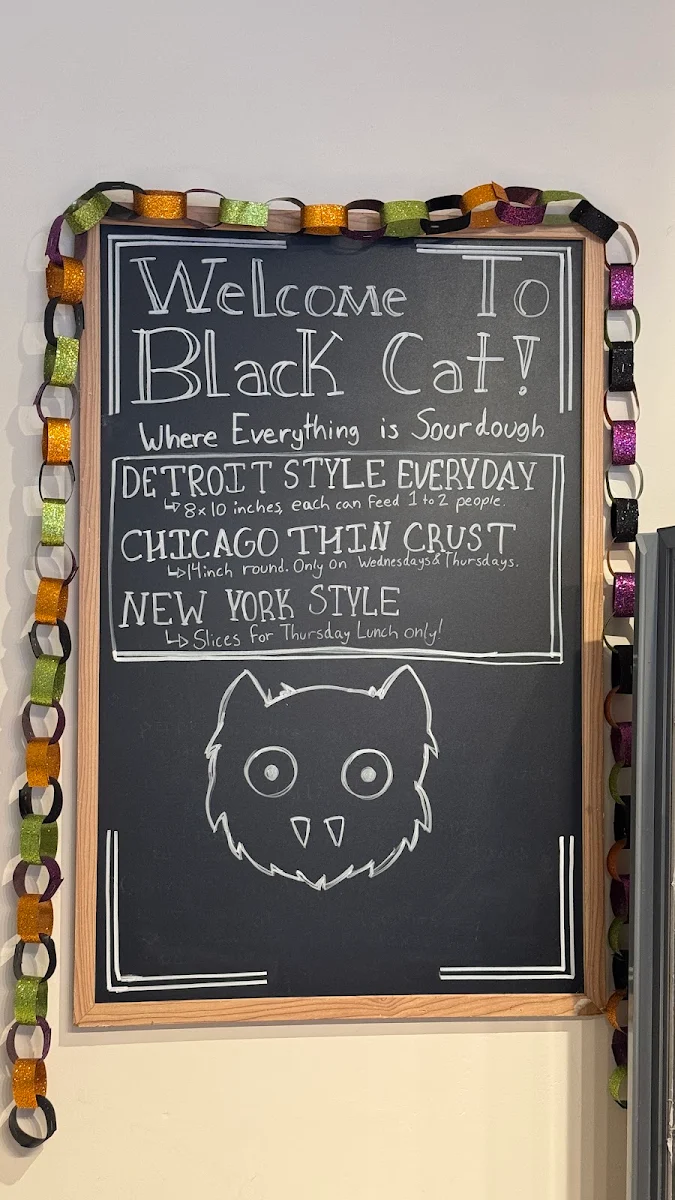 Welcome To
Black Cat!
Where Everything is Sourdough
DETROIT STYLE EVERYDAY
↳ 8x10 inches, each can feed 1 to 2 people.
CHICAGO THIN CRUST
↳ 14inch round. Only on Wednesdays & Thursdays.
NEW YORK STYLE
↳ Slices for Thursday Lunch only!